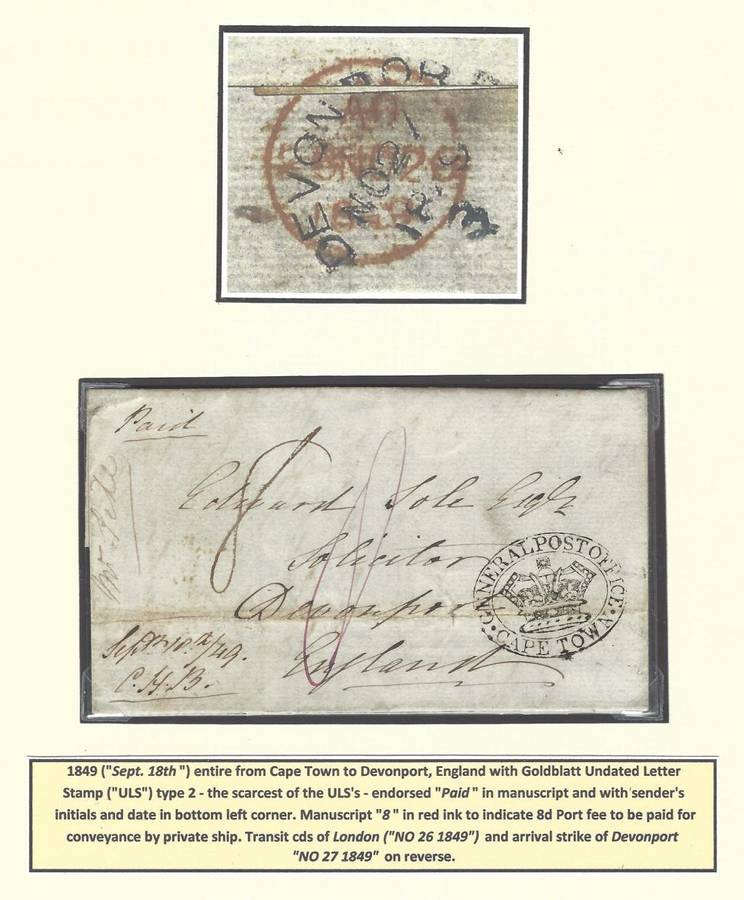 DEVONPORT
NO 27
Paid
Edward Sole Esqr
8
Solicitor
Devonport
England
GENERAL POST OFFICE
CAPE TOWN
C.H.B.
1849 ("Sept. 18th") entire from Cape Town to Devonport, England with Goldblatt Undated Letter
Stamp ("ULS") type 2 - the scarcest of the ULS's - endorsed "Paid" in manuscript and with sender's
initials and date in bottom left corner. Manuscript "8" in red ink to indicate 8d Port fee to be paid for
conveyance by private ship. Transit cds of London ("NO 26 1849") and arrival strike of Devonport
"NO 27 1849" on reverse.